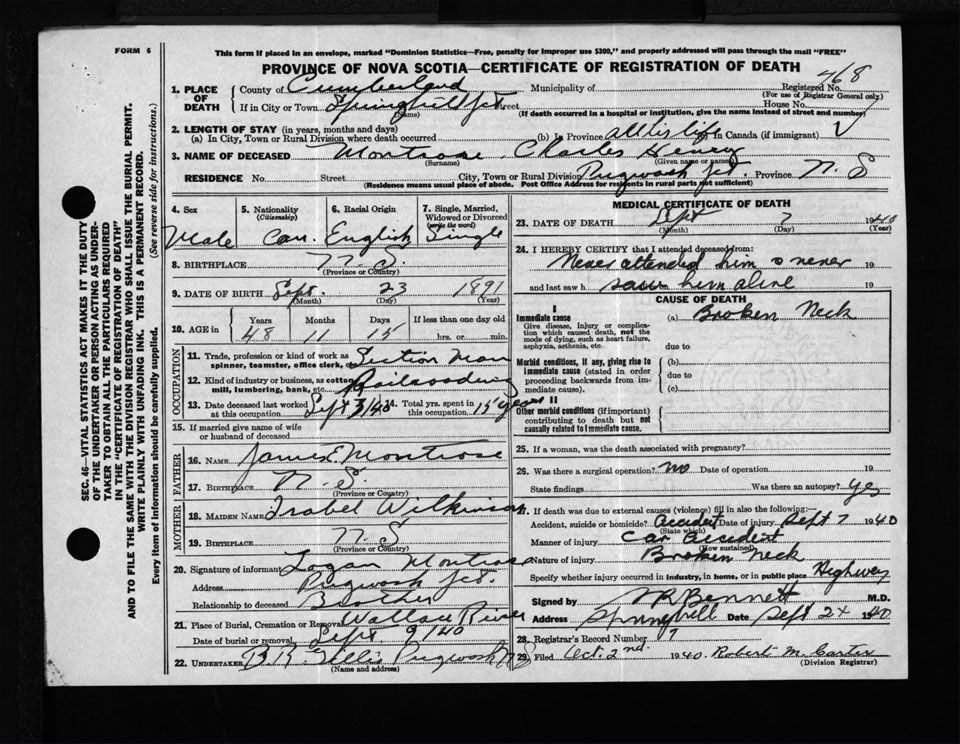 FORM 6
This form if placed in an envelope, marked "Dominion Statistics—Free, penalty for improper use $300," and properly addressed will pass through the mail "FREE"
PROVINCE OF NOVA SCOTIA—CERTIFICATE OF REGISTRATION OF DEATH
468
1. PLACE OF DEATH
County of Cumberland Municipality of Registered No.
(For use of Registrar General only)
If in City or Town Springhill Jct. Street House No.
(Name) (If death occurred in a hospital or institution, give the name instead of street and number)
2. LENGTH OF STAY (in years, months and days)
(a) In City, Town or Rural Division where death occurred (b) In Province all his life In Canada (if immigrant)
3. NAME OF DECEASED Montrose Charles Henry
(Surname) (Given name or names)
RESIDENCE No. Street City, Town or Rural Division Pugwash Jct. Province N. S
(Residence means usual place of abode. Post Office Address for residents in rural parts not sufficient)
4. Sex Male
5. Nationality (Citizenship) Can.
6. Racial Origin English
7. Single, Married, Widowed or Divorced (write the word) Single
8. BIRTHPLACE N. S
(Province or Country)
9. DATE OF BIRTH Sept. 23 1891
(Month) (Day) (Year)
10. AGE in Years Months Days If less than one day old
48 11 15 hrs. or min.
OCCUPATION
11. Trade, profession or kind of work as spinner, teamster, office clerk, etc. Section Man
12. Kind of industry or business, as cotton mill, lumbering, bank, etc. Railroading
13. Date deceased last worked at this occupation Sept 7/40
14. Total yrs. spent in this occupation. 15 years
15. If married give name of wife or husband of deceased
FATHER
16. NAME James E Montrose
17. BIRTHPLACE N. S.
(Province or Country)
MOTHER
18. MAIDEN NAME Isabel Wilkinson
19. BIRTHPLACE N. S
(Province or Country)
20. Signature of informant Logan Montrose
Address Pugwash Jct.
Relationship to deceased Brother
21. Place of Burial, Cremation or Removal Wallace River
Date of burial or removal Sept 9/40
22. UNDERTAKER Pugwash N S
(Name and address)
MEDICAL CERTIFICATE OF DEATH
23. DATE OF DEATH Sept 7 1940
(Month) (Day) (Year)
24. I HEREBY CERTIFY that I attended deceased from:
Never attended him & never 19
and last saw h saw him alive 19
CAUSE OF DEATH
I
Immediate cause (a) Broken Neck
Give disease, injury or complication which caused death, not the mode of dying, such as heart failure, asphyxia, asthenia, etc.
due to
Morbid conditions, if any, giving rise to immediate cause (stated in order proceeding backwards from immediate cause).
(b)
due to
(c)
II
Other morbid conditions (if important) contributing to death but not causally related to immediate cause.
25. If a woman, was the death associated with pregnancy?
26. Was there a surgical operation? no Date of operation 19
State findings Was there an autopsy? yes
27. If death was due to external causes (violence) fill in also the following:—
Accident, suicide or homicide? Accident Date of injury Sept 7 1940
(State which)
Manner of injury Car accident
(How sustained)
Nature of injury Broken neck
Specify whether injury occurred in industry, in home, or in public place Highway
Signed by Bennett M.D.
Address Springhill Date Sept 24 1940
28. Registrar's Record Number 7
29. Filed Oct. 2nd. 1940. Robert M. Carter
(Division Registrar)
SEC. 46—VITAL STATISTICS ACT MAKES IT THE DUTY OF THE UNDERTAKER OR PERSON ACTING AS UNDERTAKER TO OBTAIN ALL THE PARTICULARS REQUIRED IN THE "CERTIFICATE OF REGISTRATION OF DEATH" AND TO FILE THE SAME WITH THE DIVISION REGISTRAR WHO SHALL ISSUE THE BURIAL PERMIT.
WRITE PLAINLY WITH UNFADING INK. THIS IS A PERMANENT RECORD.
Every item of information should be carefully supplied. (See reverse side for instructions.)